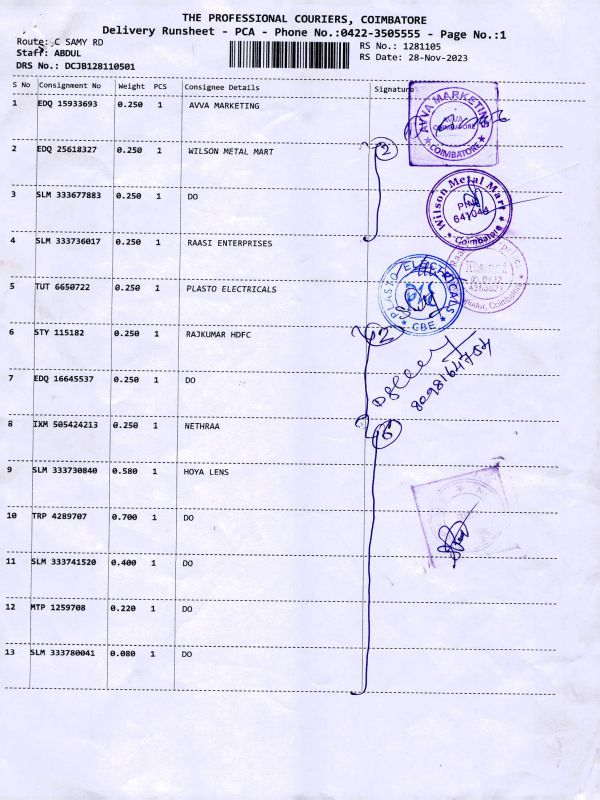 THE PROFESSIONAL COURIERS, COIMBATORE
Delivery Runsheet - PCA - Phone No.:0422-3505555 - Page No.:1
Route: C SAMY RD
RS No.: 1281105
Staff: ABDUL
RS Date: 28-Nov-2023
DRS No.: DCJB128110501
S No Consignment No Weight PCS Consignee Details Signature
1 EDQ 15933693 0.250 1 AVVA MARKETING
2 EDQ 25618327 0.250 1 WILSON METAL MART
3 SLM 333677883 0.250 1 DO
4 SLM 333736017 0.250 1 RAASI ENTERPRISES
5 TUT 6650722 0.250 1 PLASTO ELECTRICALS
6 STY 115182 0.250 1 RAJKUMAR HDFC
7 EDQ 16645537 0.250 1 DO
8 IXM 505424213 0.250 1 NETHRAA
9 SLM 333730840 0.580 1 HOYA LENS
10 TRP 4289707 0.700 1 DO
11 SLM 333741520 0.400 1 DO
12 MTP 1259708 0.220 1 DO
13 SLM 333780041 0.080 1 DO
AVVA MARKETING
AVVA
COIMBATORE
COIMBATORE
2
Wilson Metal Mart
PIN
641044
Coimbatore
PLASTO ELECTRICALS
CBE
2
8098164754
6